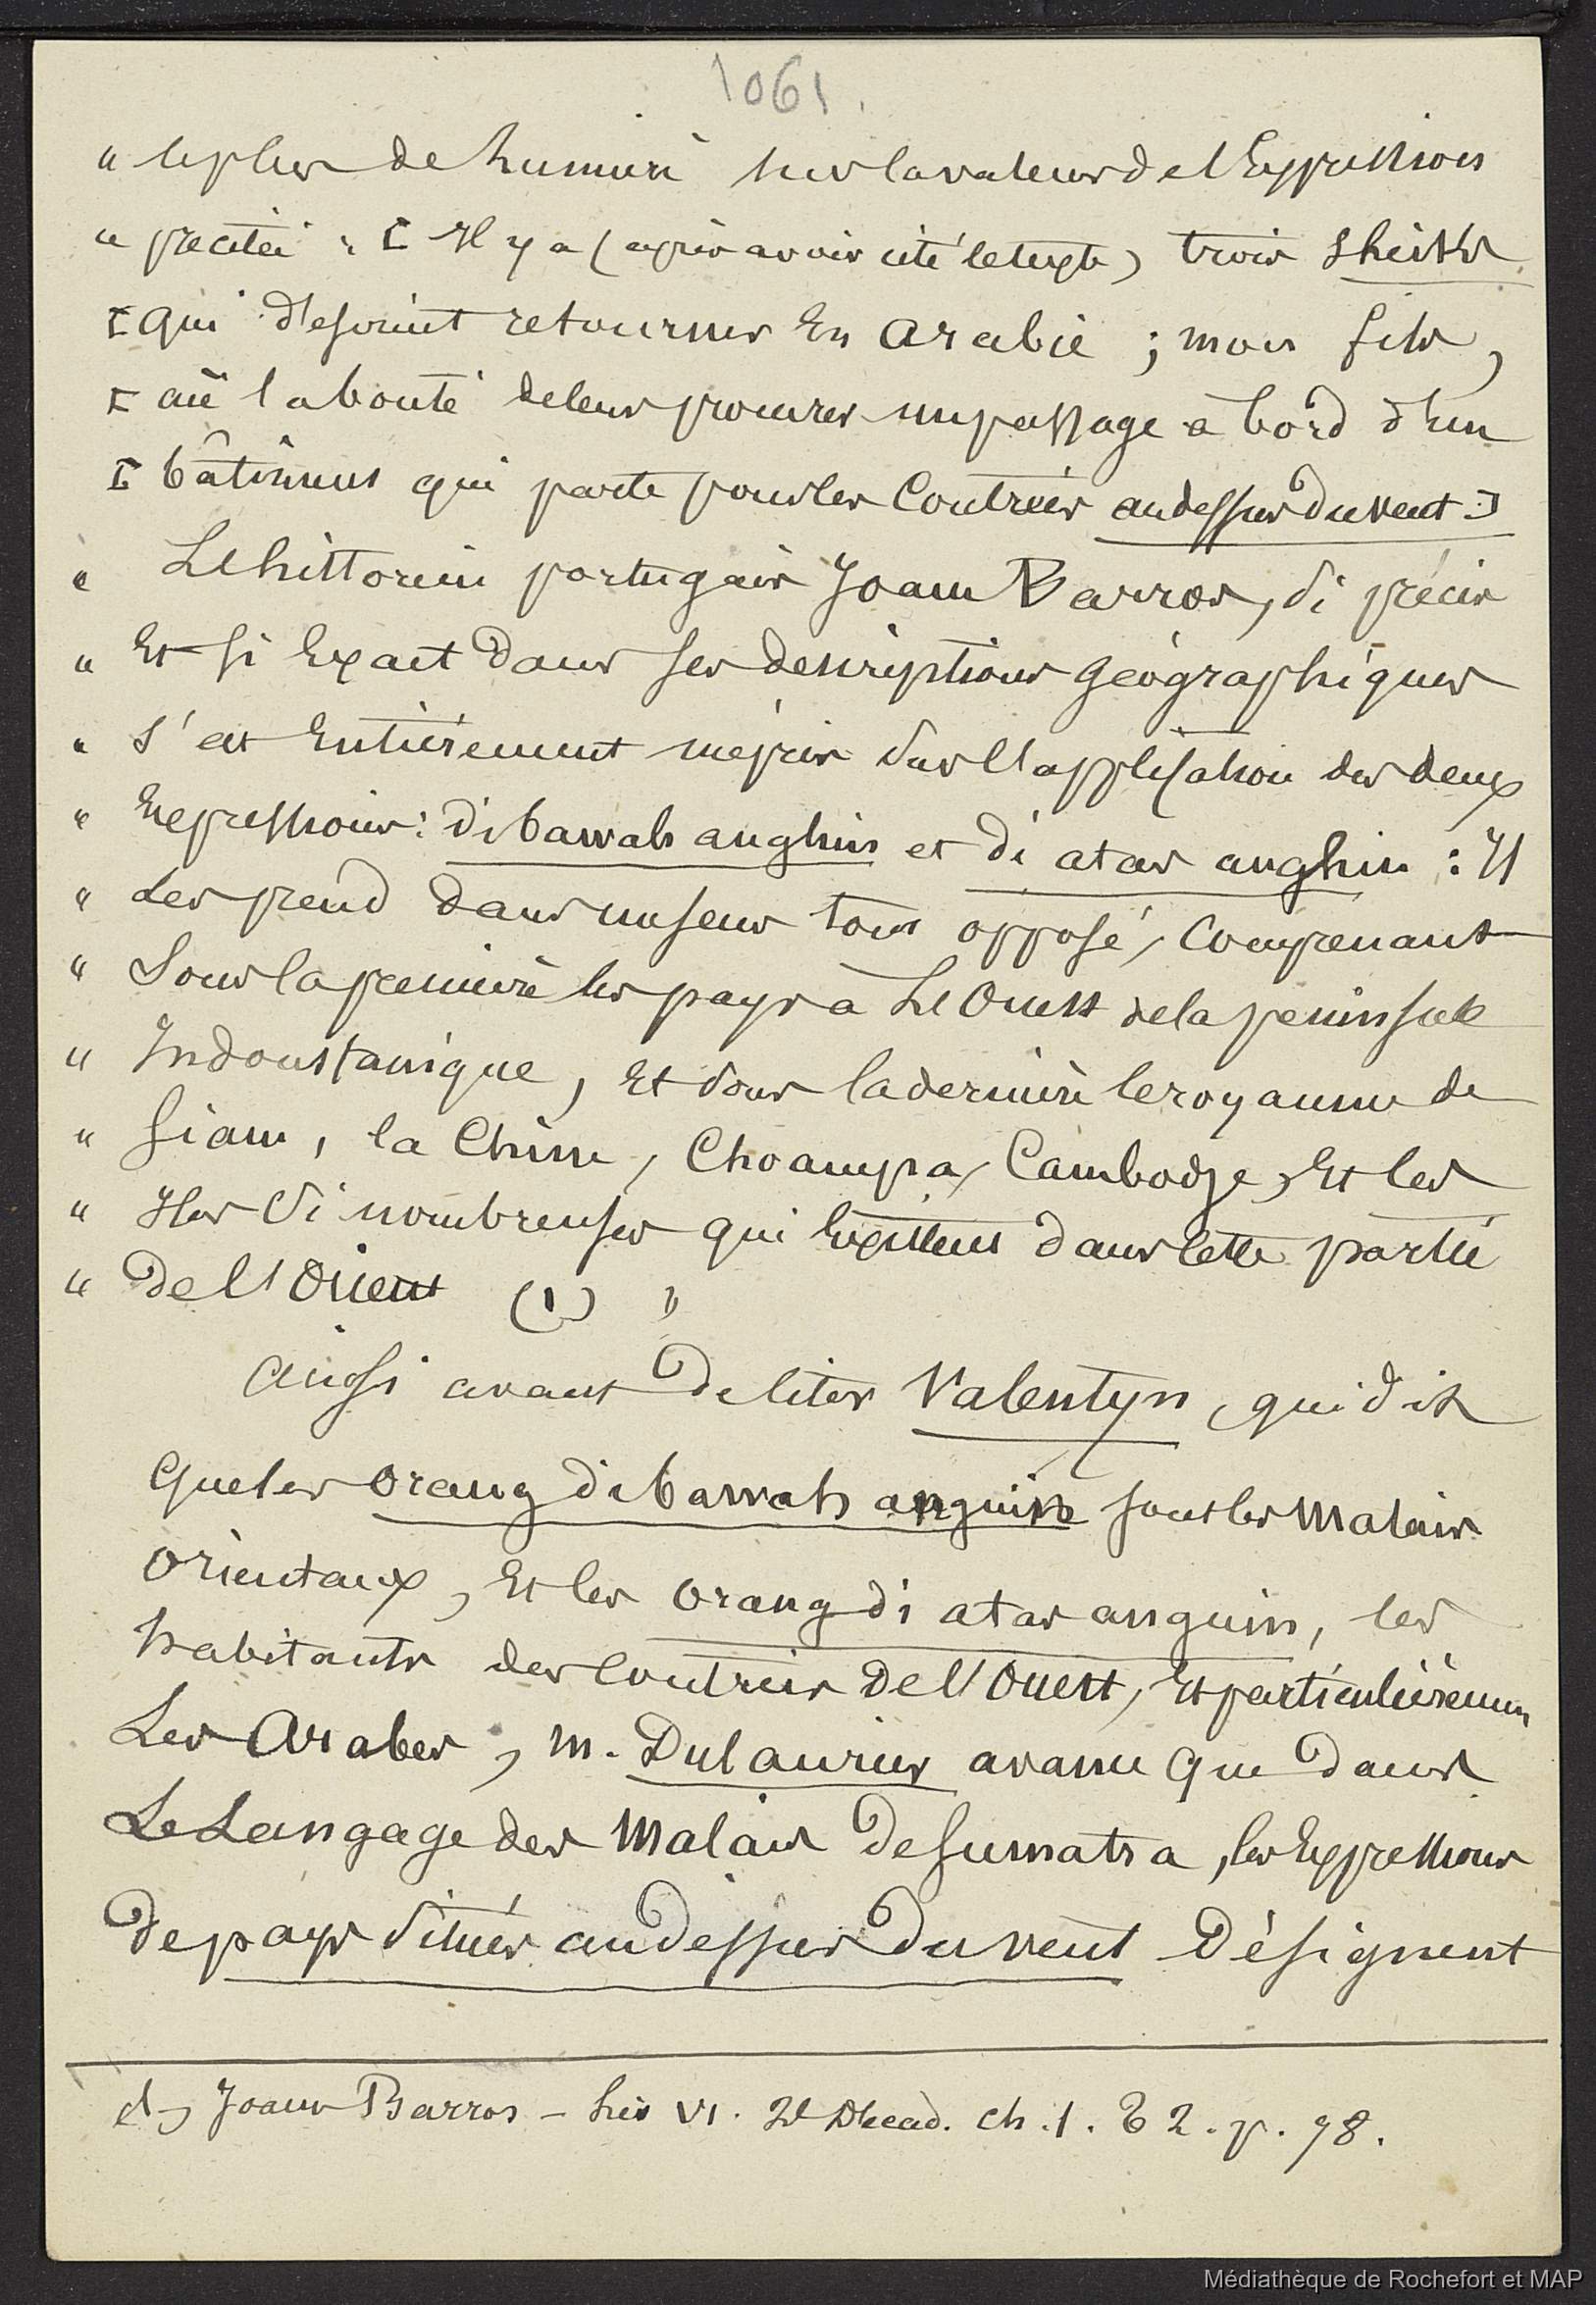 1061.
" le plus de lumière sur la valeur de l'Expression
" precitée : [ Il y a (après avoir cité le texte) trois sheikhs
[ qui desirent retourner En Arabie ; mon fils,
[ aie la bonté de leur procurer un passage à bord d'un
[ bâtiment qui parte pour les Contrées au dessus du vent ]
" L'historien portugais Joam Barros, si précis
" Et si Exact dans ses descriptions géographiques
" s'est Entièrement mépris sur l'application des deux
" Expressions : di bawah anghin et di atas anghin : Il
" les prend dans un sens tout opposé, Comprenant
" Sous la premiere les pays à L'Ouest de la peninsule
" Indoustanique, Et sous la dernière le royaume de
" Siam, la Chine, Choampa, Cambodge, Et les
" Iles si nombreuses qui Existent dans cette partie
" De l'Orient (1) "
Ainsi avant De citer Valentyn, qui dit
que les orang di bawah anguin sont les Malais
orientaux, Et les orang di atas anguin, les
habitants des Contrées De l'Ouest, Et particulièrement
Les Arabes, M. Dulaurier avance que dans
Le Langage des Malais De Sumatra, les Expressions
De pays situés au dessus du vent Désignent
(1) Joam Barros – Liv VI. 2e Décad. Ch. 1. t 2. p. 78.
Médiathèque de Rochefort et MAP